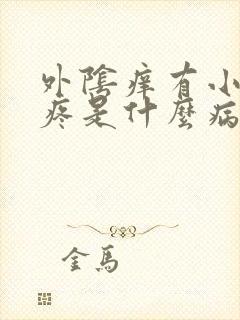 外陰痒有小
疼是什麼病
金馬